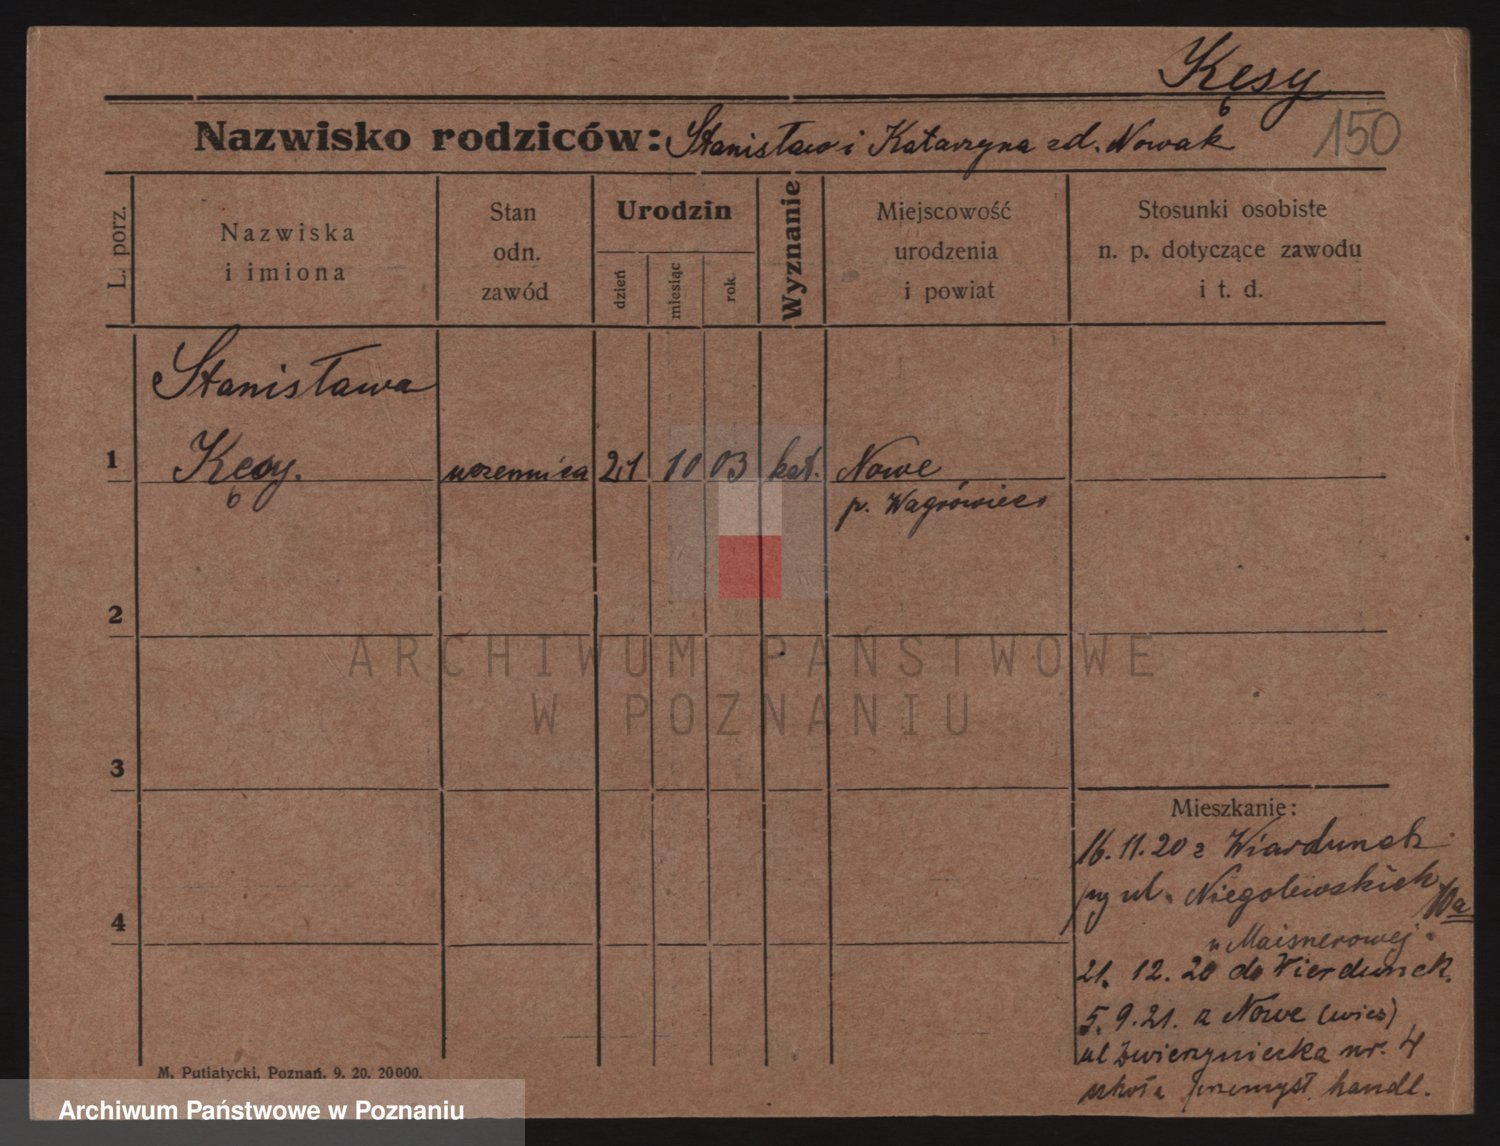 Kęsy
150
Nazwisko rodziców: Stanisław i Katarzyna zd. Nowak
L. porz.
Nazwiska
i imiona
Stan
odn.
zawód
Urodzin
dzień
miesiąc
rok
Wyznanie
Miejscowość
urodzenia
i powiat
Stosunki osobiste
n. p. dotyczące zawodu
i t. d.
Stanisława
1 Kęsy. uczennica 21 10 03 kat. Nowe
p. Wągrówiec
2
3
4
Mieszkanie:
16.11.20 z Wiardunek
przy ul. Niegolewskich 10a
u Maisnerowej
21. 12. 20 do Vierdunek.
5. 9. 21. z Nowe (wieś)
ul Zwierzyniecka nr. 4
szkoła przemysł. handl.
M. Putiatycki, Poznań. 9. 20. 20000.
ARCHIWUM PAŃSTWOWE
W POZNANIU
Archiwum Państwowe w Poznaniu